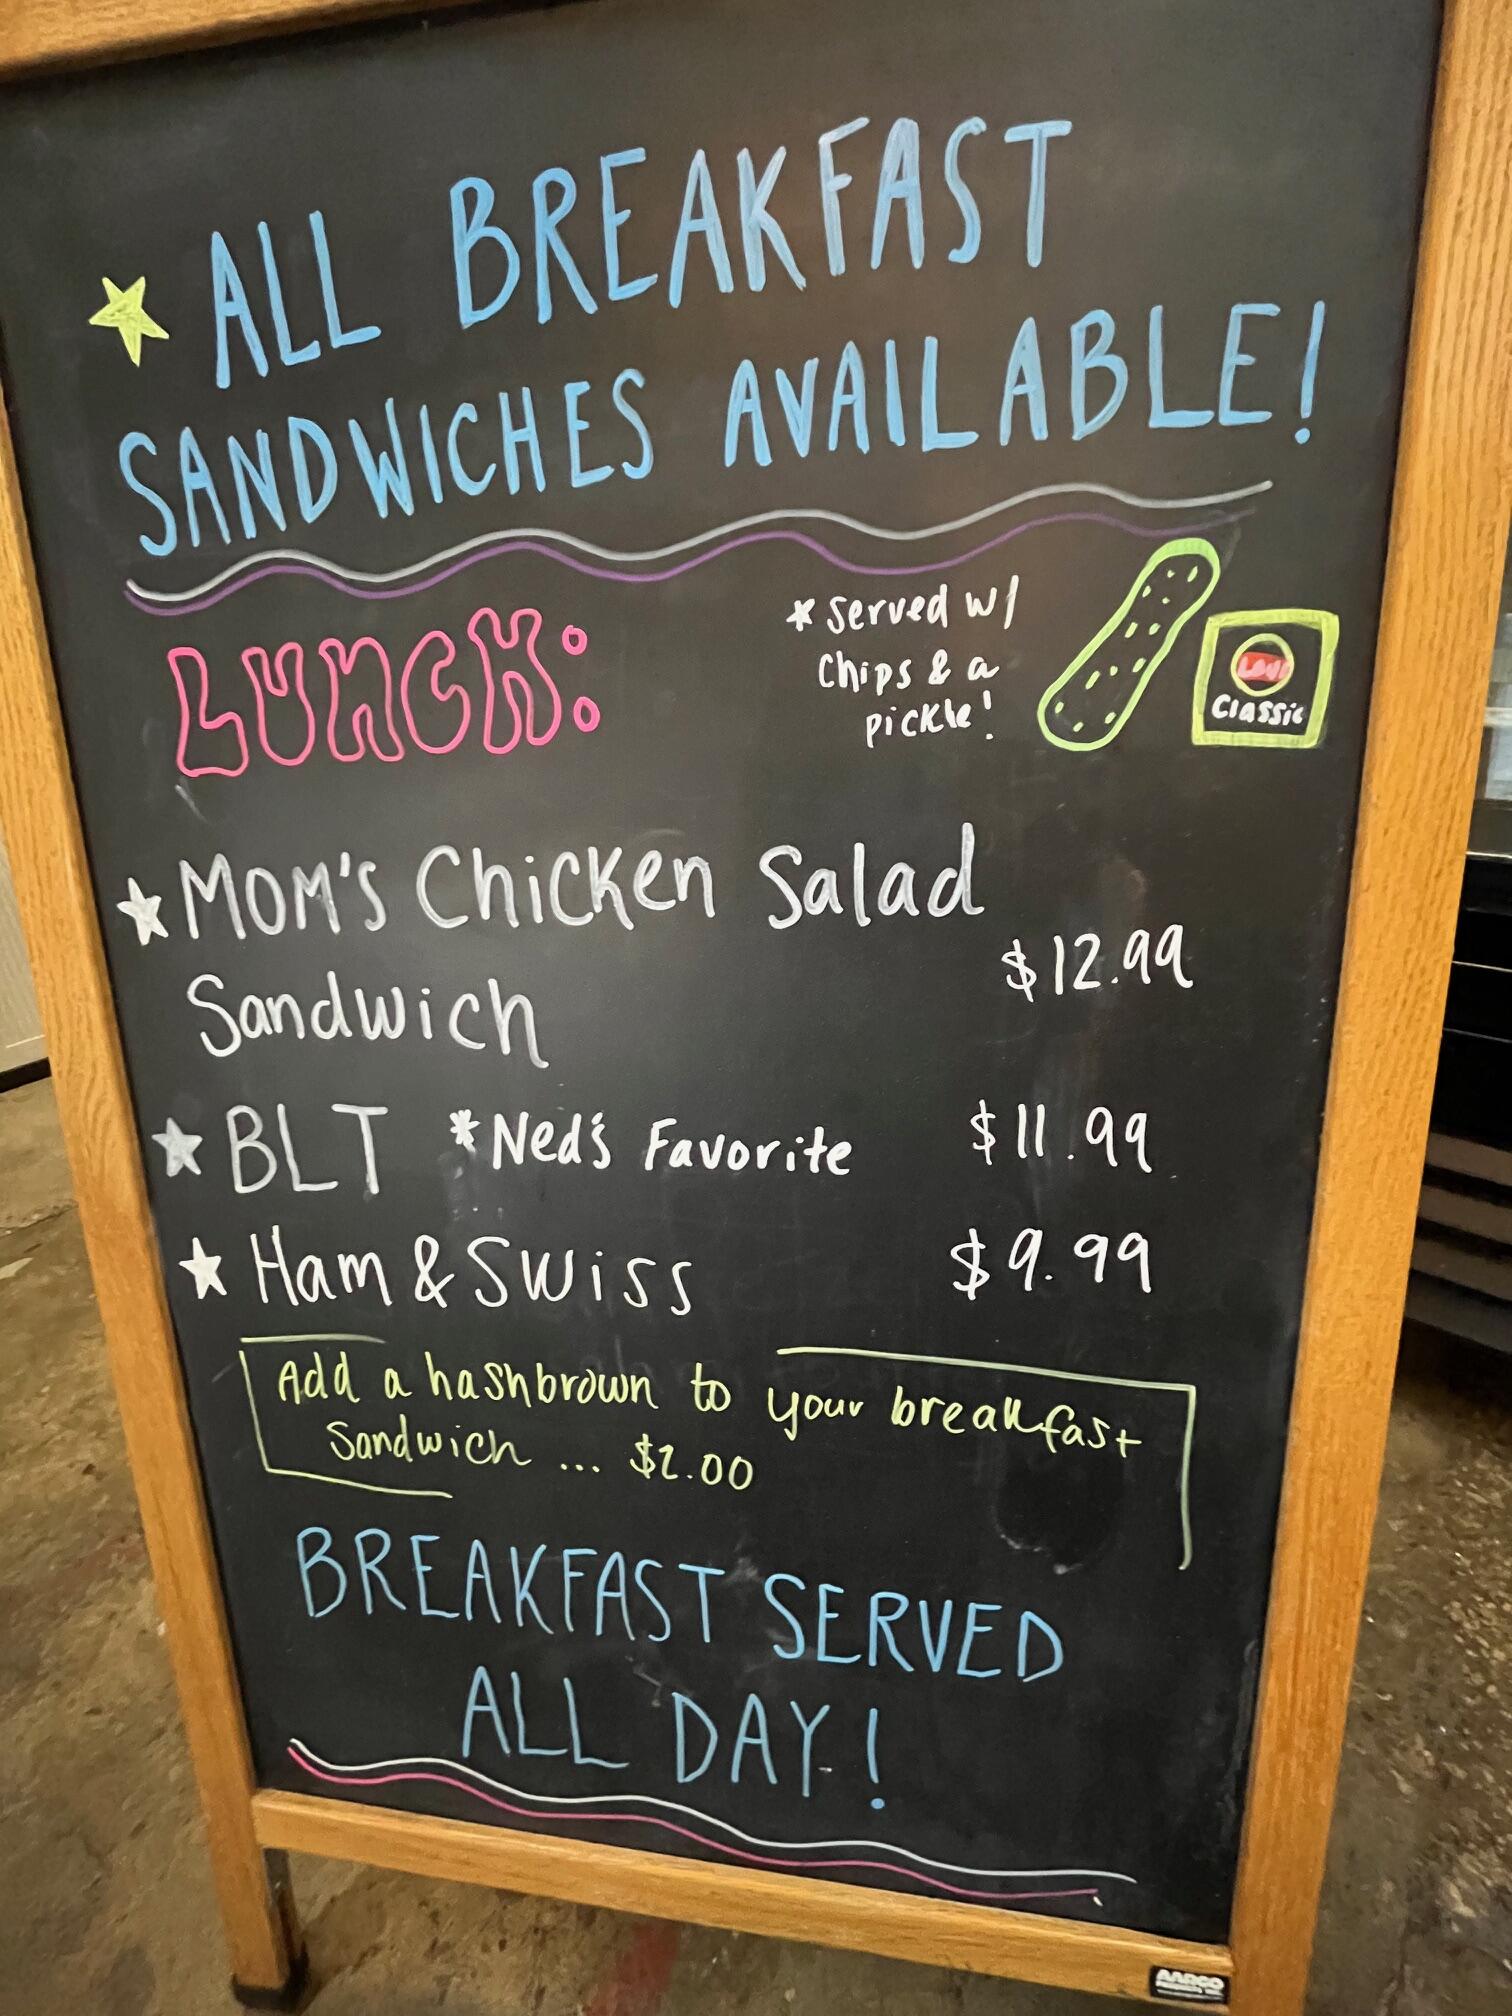 ALL BREAKFAST
SANDWICHES AVAILABLE!
LUNCH:
* Served w/
Chips & a
pickle!
LAY'S
Classic
MOM'S Chicken Salad
Sandwich
$12.99
BLT *Ned's Favorite $11.99
Ham & Swiss $9.99
Add a hashbrown to your breakfast
Sandwich ... $2.00
BREAKFAST SERVED
ALL DAY!
AARCO